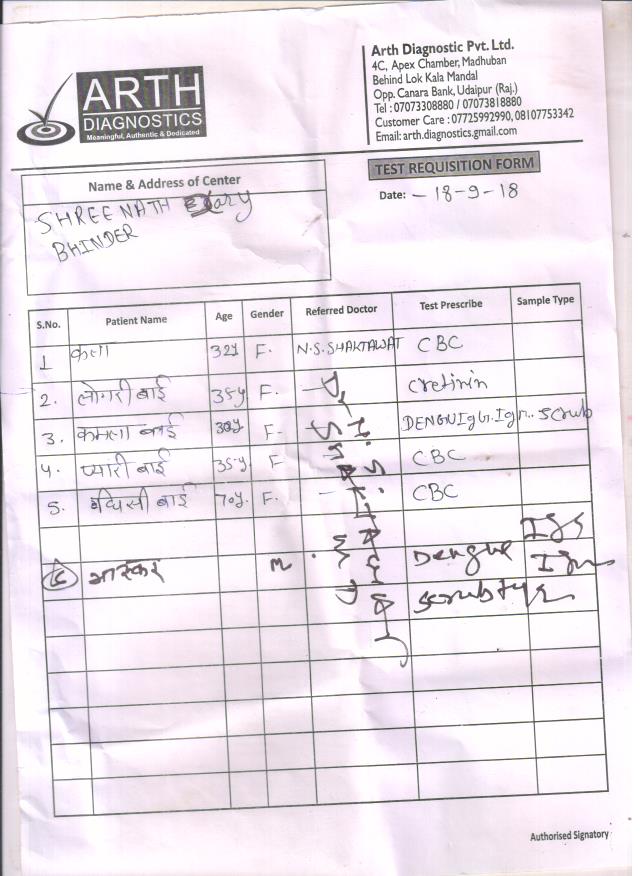 ARTH
DIAGNOSTICS
Meaningful, Authentic & Dedicated
Arth Diagnostic Pvt. Ltd.
4C, Apex Chamber, Madhuban
Behind Lok Kala Mandal
Opp. Canara Bank, Udaipur (Raj.)
Tel : 07073308880 / 07073818880
Customer Care : 07725992990, 08107753342
Email: arth.diagnostics.gmail.com
TEST REQUISITION FORM
Date: - 18-9-18
Name & Address of Center
SHREENATH
BHINDER
S.No. Patient Name Age Gender Referred Doctor Test Prescribe Sample Type
1 कला 32y F. N.S. SHAKTAWAT CBC
2. लोगरी बाई 35y F. Cretinin
3. कमला बाई F. DENGUIgG.Igm.. Scrub
4. प्यारी बाई 35y. F CBC
5. बाई 70y. F. CBC
Dr N.S. SHAKTAWAT
6 भास्कर m Dengue IgG Igm
Scrub
Authorised Signatory